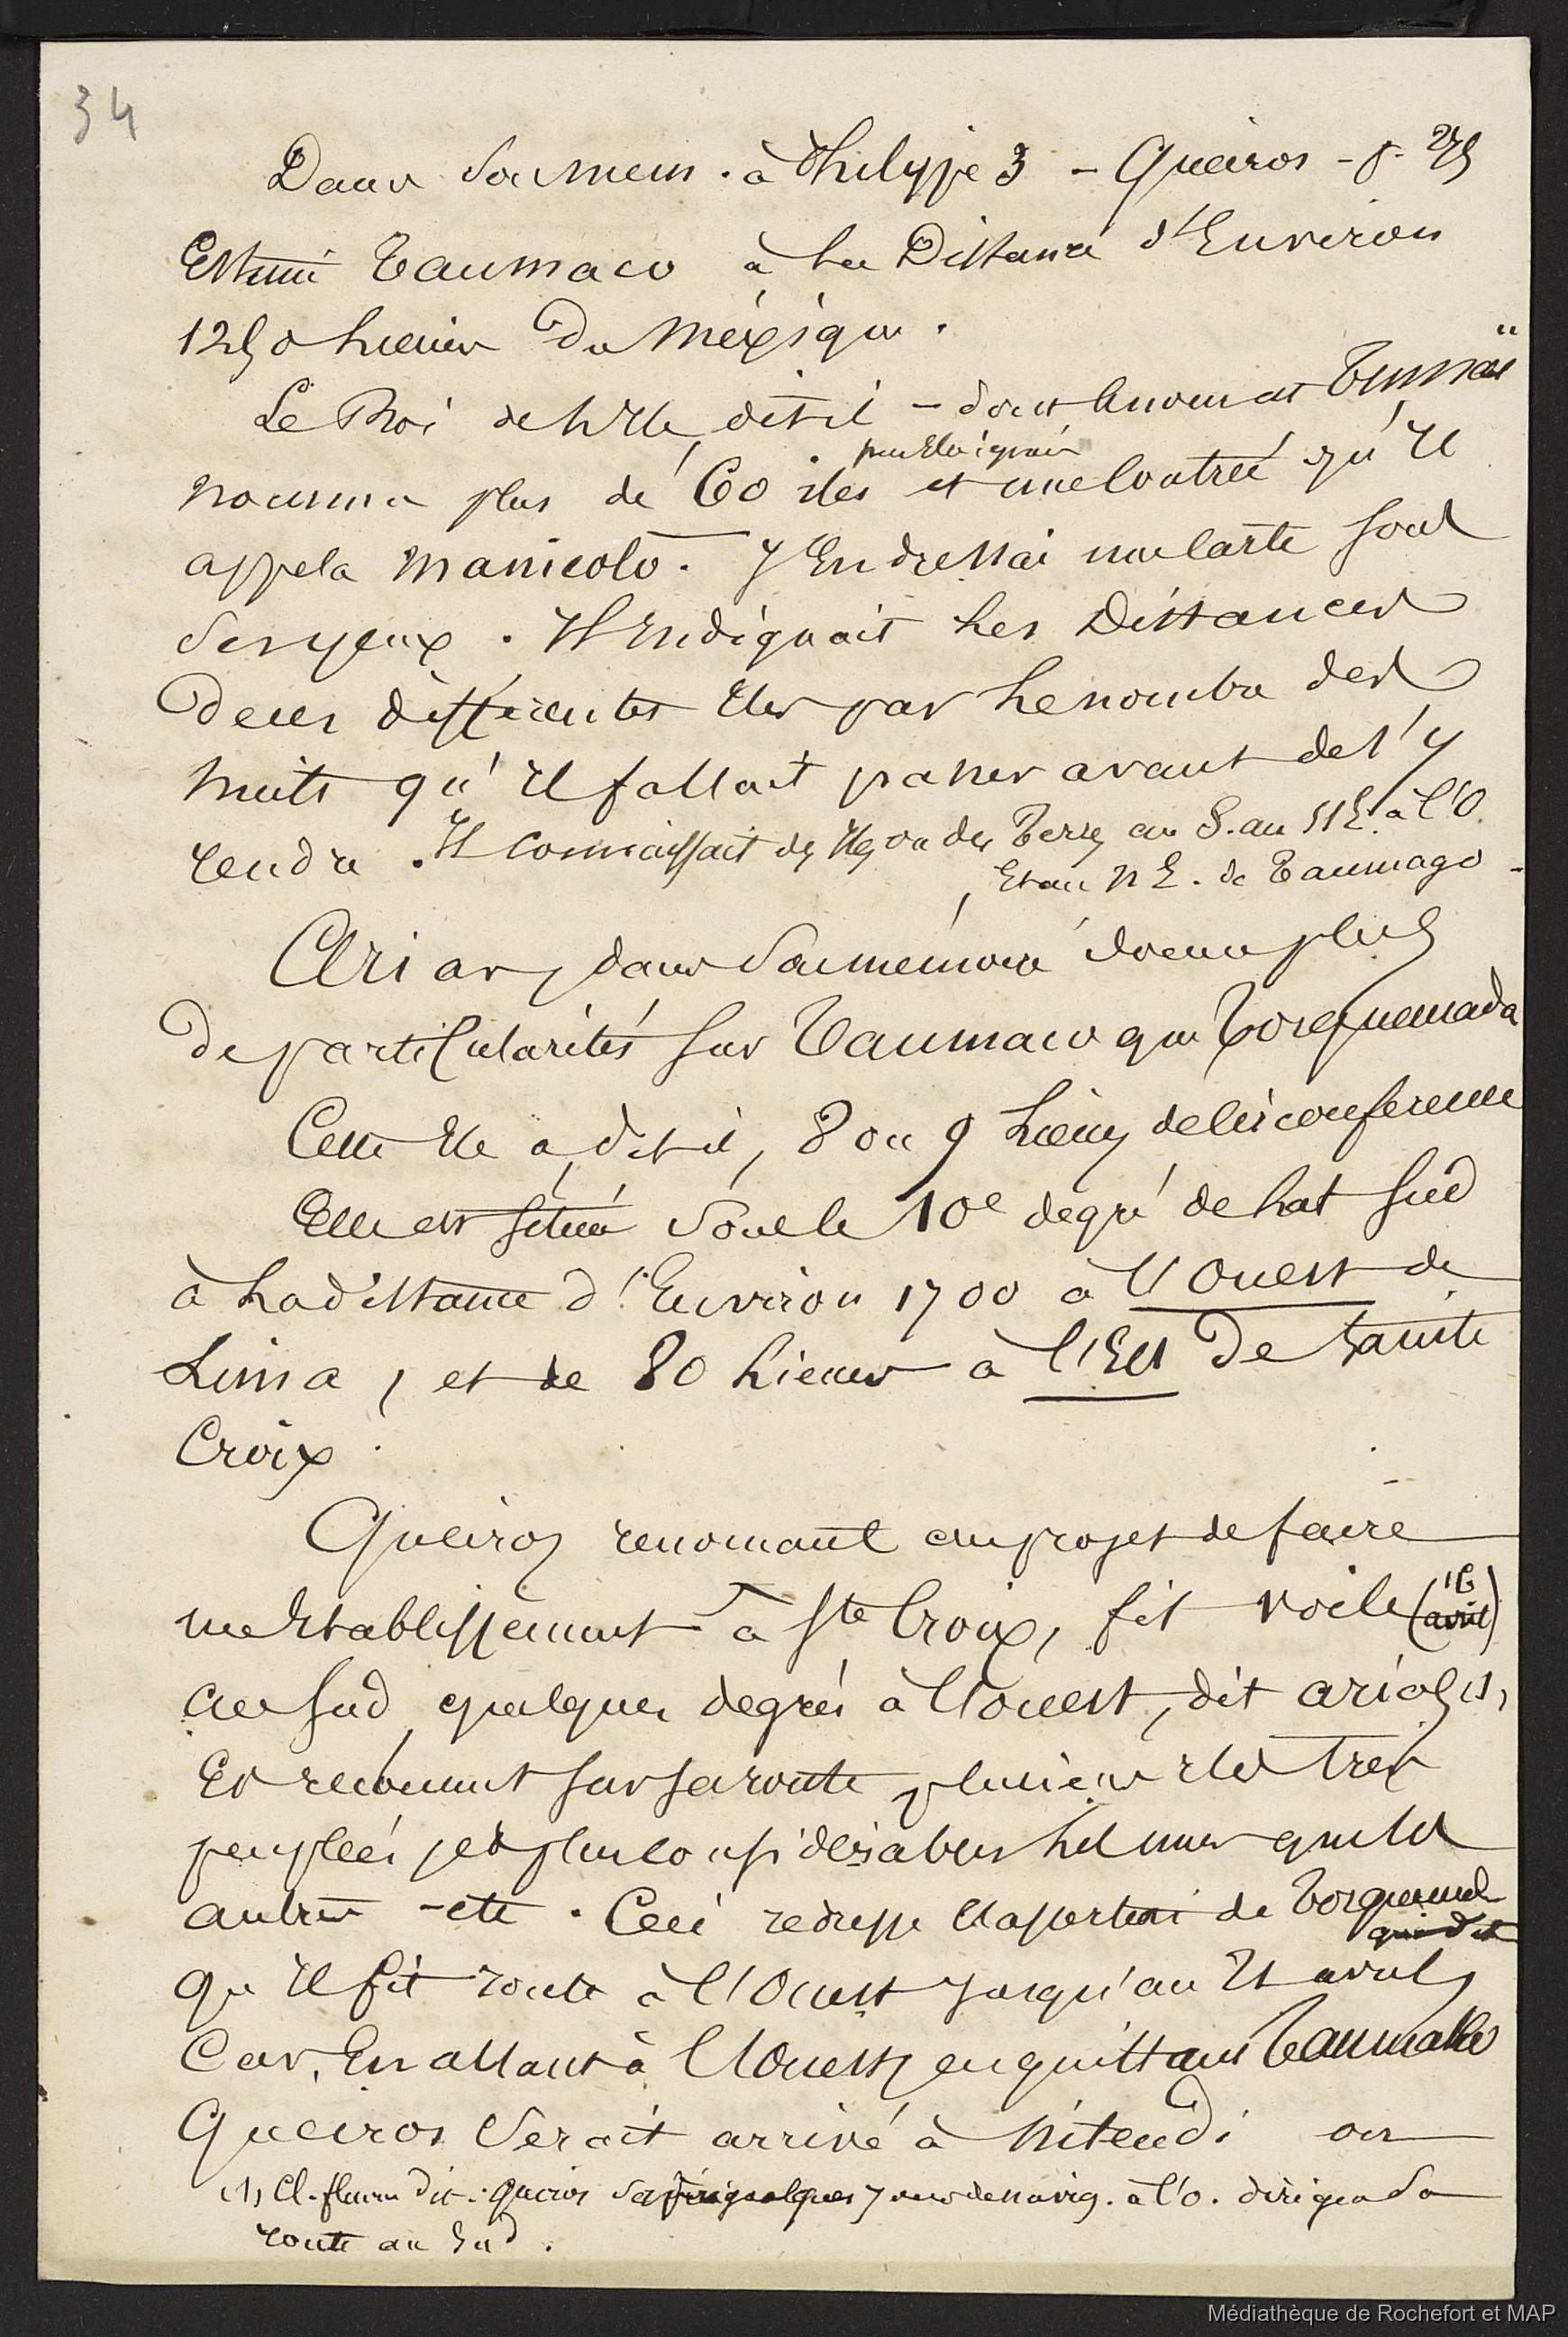 34
Dans son mem. à Philippe 3 - Queiros - p.
Estime Taumaco à la Distance d'Environ
1250 lieues du Méxique.
Le Roi de l'Ile, dit-il - dont le nom est Tumaï
nomma plus de 60 iles et une Contrée qu'Il
peu Eloignées
appela Manicolo. J'En dressai une Carte sous
ses yeux. Il Indiquait les Distances
de ces différentes Iles par le nombre des
nuits qu'Il fallait passer avant de s'y
rendre. Il connaissait des Iles ou des Terres au S. au SE. à l'O.
Et au NE. de Taumago -
Arias, dans son mémoire donne plus
de particularités sur Taumaco que Torquemada
Cette Ile a, dit-il, 8 ou 9 Lieues de circonference
Elle est située sous le 10e degré de lat sud
à la distance d'Environ 1700 à l'Ouest de
Lima, et de 80 Lieues à l'Est De Sainte
Croix.
Queiros renonçant au projet de faire
un Etablissement à Ste Croix, fit voile (16 avril)
au sud, quelques degrés à l'ouest, dit arias (1),
Et reconnut sur sa route plusieurs iles très
peuplées, et plus considérables les unes que les
autres - etc. Ceci redresse l'assertion de Torquemada
qui dit
qu'Il fit route à l'Ouest jusqu'au 21 avril,
Car, En allant à l'Ouest, en quittant Taumako
Queiros Serait arrivé à Nitendi ou
(1) Cl. fleurieu dit: Queiros après quelques jours de navig. à l'o. dirigea sa
route au Sud.
Médiathèque de Rochefort et MAP